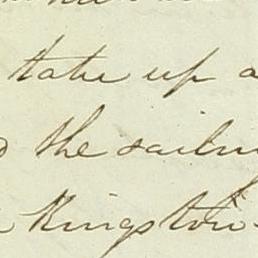 take up a
the sailin
Kingston